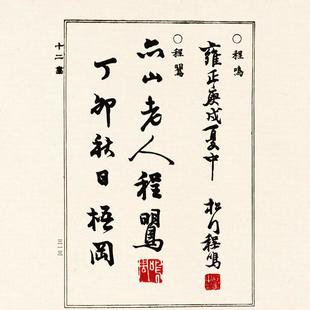 ○程鳴
雍正庚戌夏中
松門程鳴
○程鸎
六山老人程鸎
丁卯秋日梧岡
十二畫
三一三